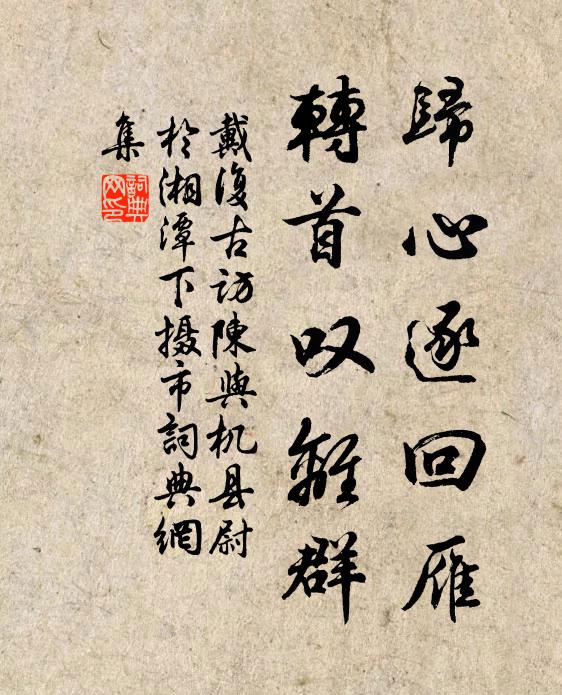 歸心逐回雁
轉首叹離群
戴復古訪陳與机县尉
於湘潭下摄市詞典網
集
詞典
网印